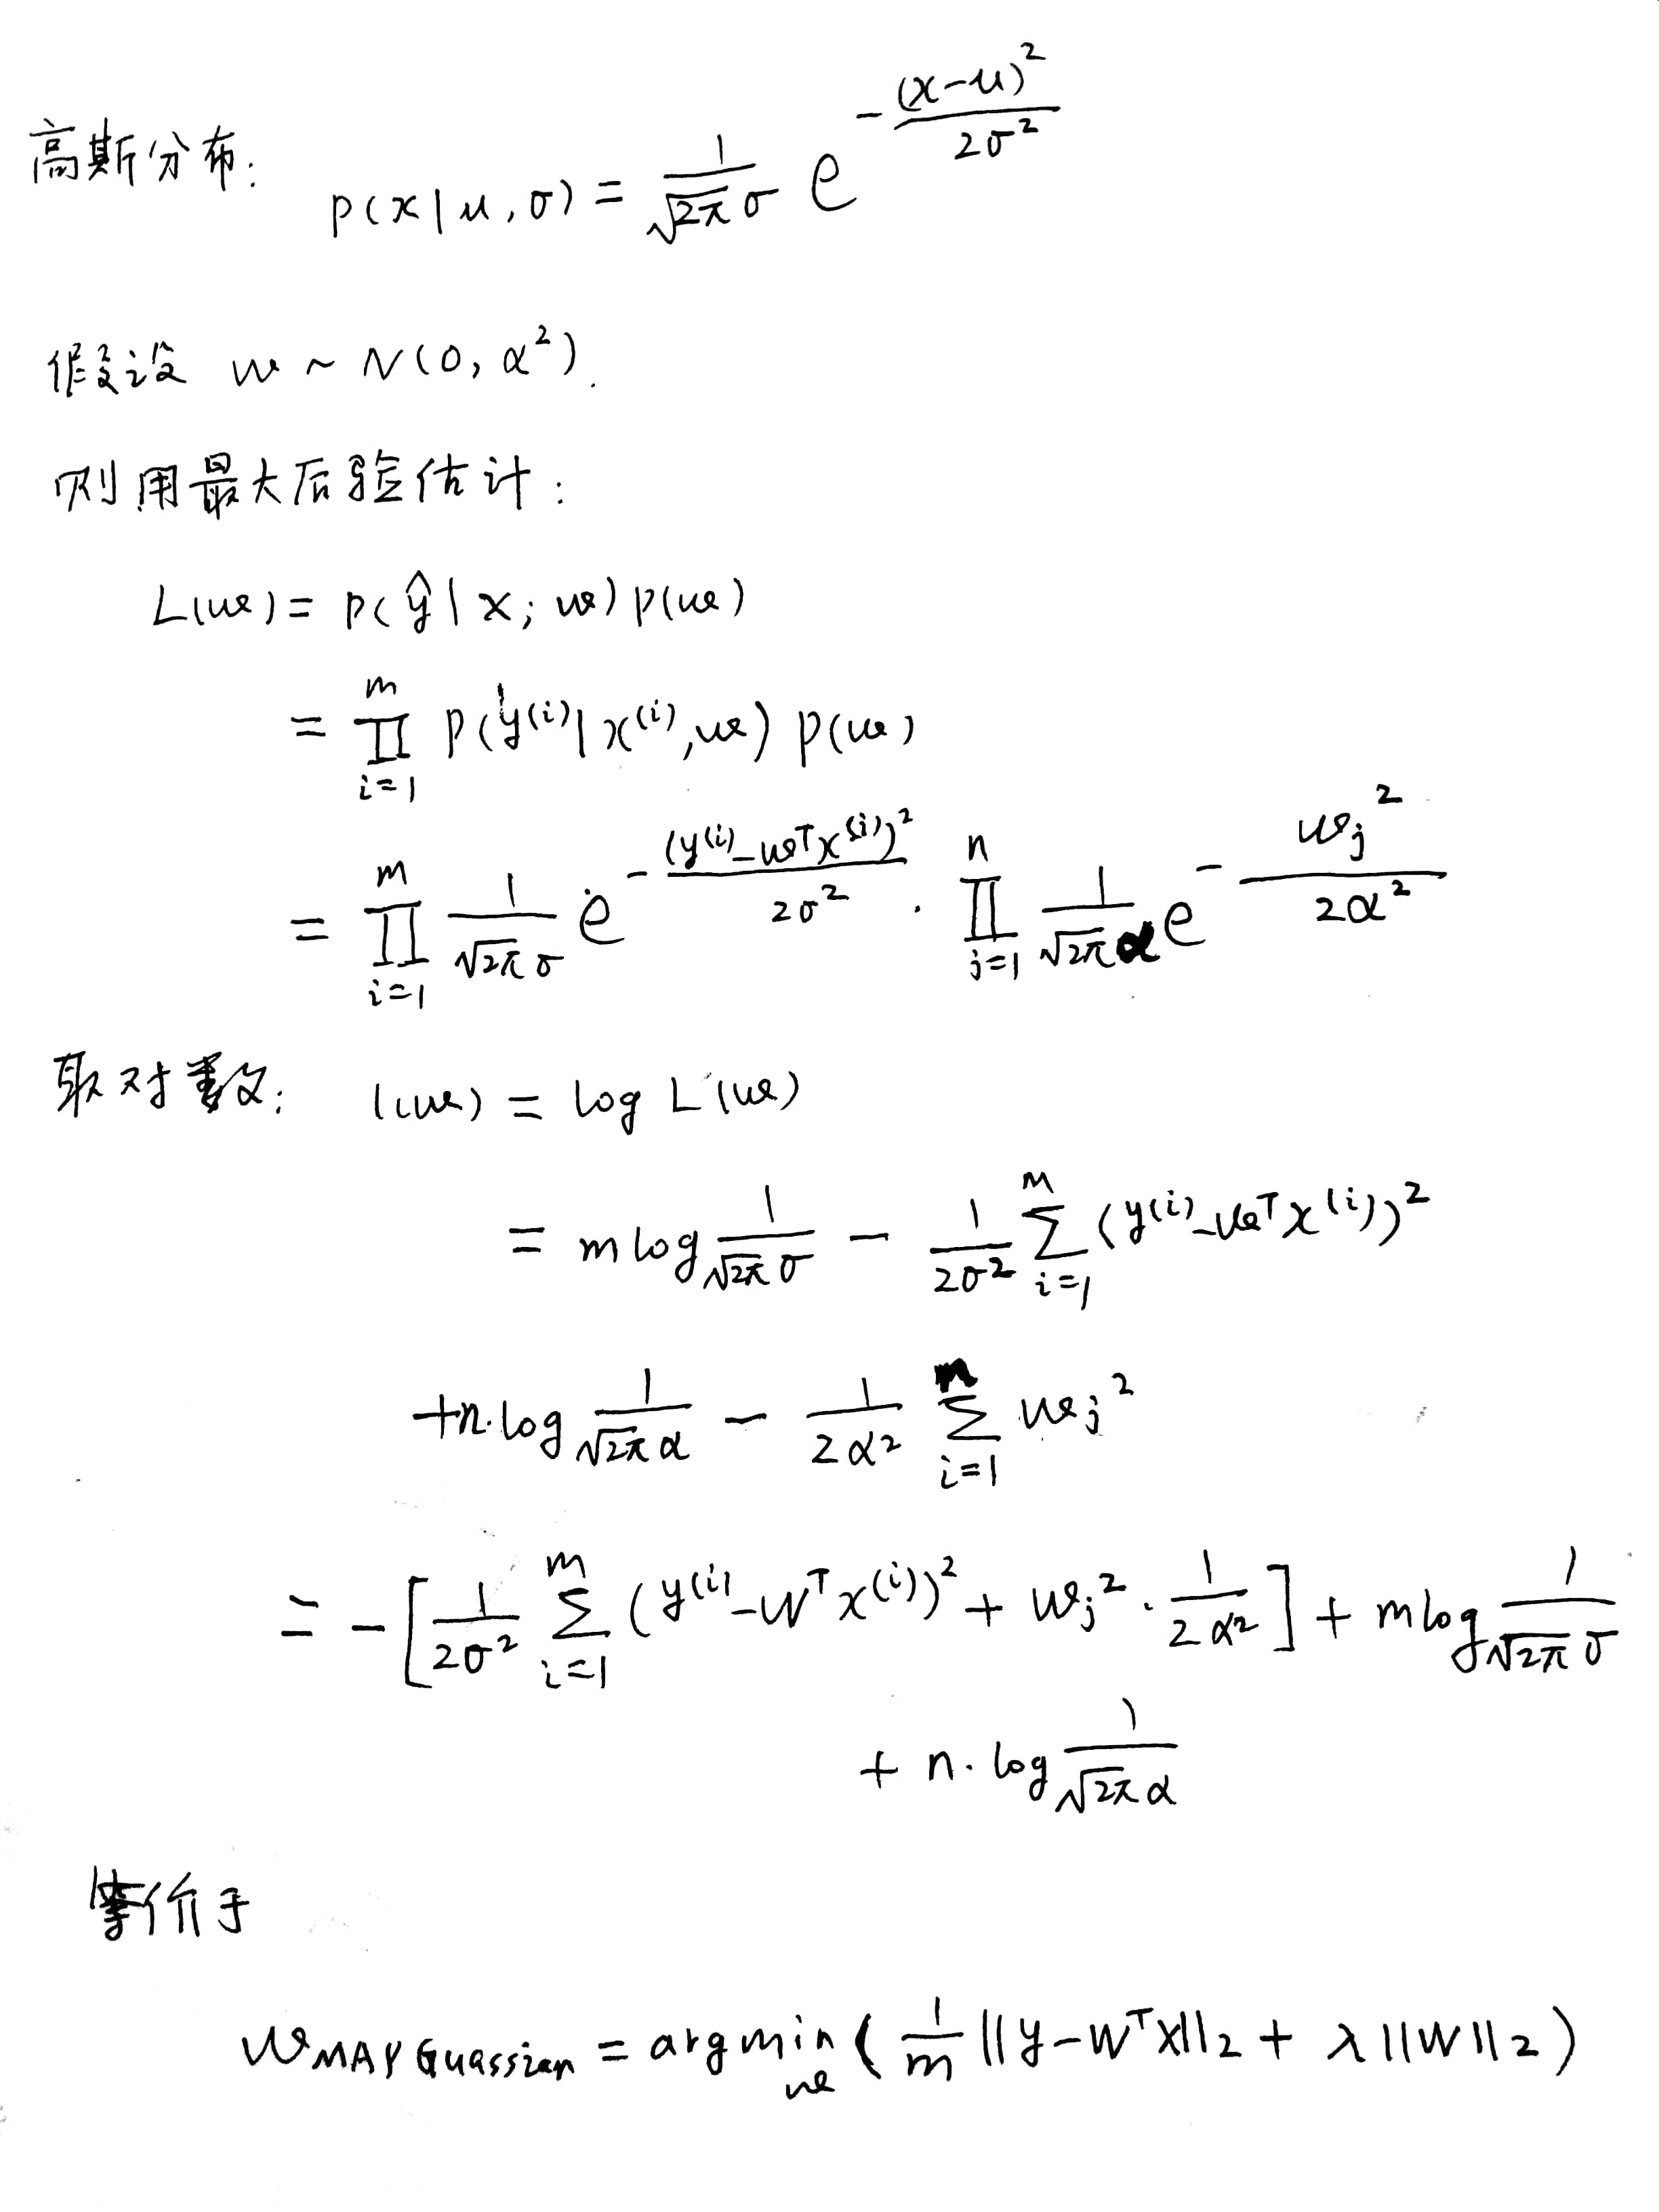 高斯分布: p(x|u,σ) = 1/(√2π σ) e^(-(x-u)²/(2σ²))
假设 w ~ N(0, α²).
则用最大后验估计:
L(w) = p(ŷ|x; w) p(w)
= ∏_{i=1}^{m} p(y⁽ⁱ⁾|x⁽ⁱ⁾,w) p(w)
= ∏_{i=1}^{m} 1/(√2π σ) e^(-(y⁽ⁱ⁾-wᵀx⁽ⁱ⁾)²/(2σ²)) · ∏_{j=1}^{n} 1/(√2π α) e^(-w_j²/(2α²))
取对数: l(w) = log L(w)
= m log 1/(√2π σ) - 1/(2σ²) ∑_{i=1}^{m} (y⁽ⁱ⁾-wᵀx⁽ⁱ⁾)²
+n·log 1/(√2π α) - 1/(2α²) ∑_{i=1}^{n} w_j²
= -[1/(2σ²) ∑_{i=1}^{m} (y⁽ⁱ⁾-Wᵀx⁽ⁱ⁾)² + w_j² · 1/(2α²)] + m log 1/(√2π σ)
+ n·log 1/(√2π α)
等价于
w_MAP Guassian = arg min_w (1/m ||y-WᵀX||₂ + λ||W||₂)